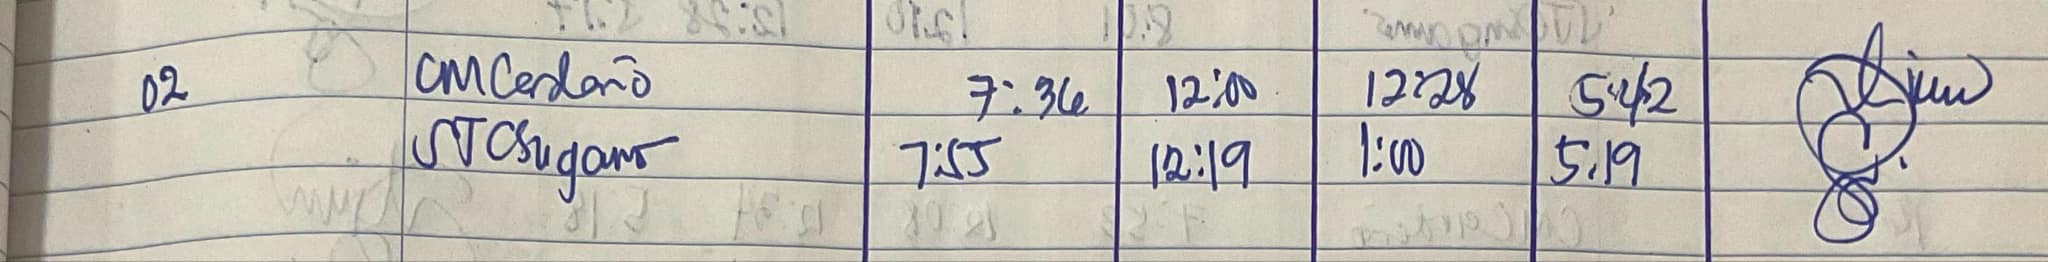 02 CM Cerdeño 7:36 12:00 12:28 5:42
STCSugano 7:55 12:19 1:00 5:19